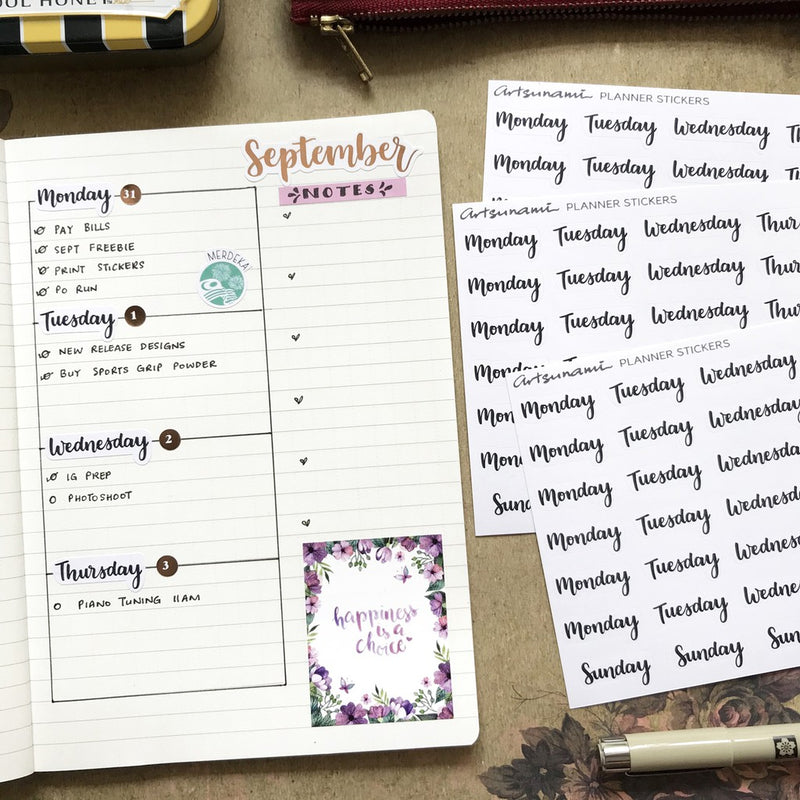 OOL HONEY
September
NOTES
Monday 31
PAY BILLS
SEPT FREEBIE
PRINT STICKERS
PO RUN
MERDEKA!
Tuesday 1
NEW RELEASE DESIGNS
BUY SPORTS GRIP POWDER
Wednesday 2
IG PREP
PHOTOSHOOT
Thursday 3
PIANO TUNING 11AM
happiness
is a
choice
artsunami PLANNER STICKERS
Monday Tuesday Wednesday
Monday Tuesday Wednesday
artsunami PLANNER STICKERS
Monday Tuesday Wednesday Thur
Monday Tuesday Wednesday Thur
Monday Tuesday Wednesday Thur
Mon
Mon
Sund
artsunami PLANNER STICKERS
Monday Tuesday Wednesday
Monday Tuesday Wednesday
Monday Tuesday Wednesda
Monday Tuesday Wednesd
Monday Tuesday Wednes
Monday Tuesday Wedne
Sunday Sunday Sun